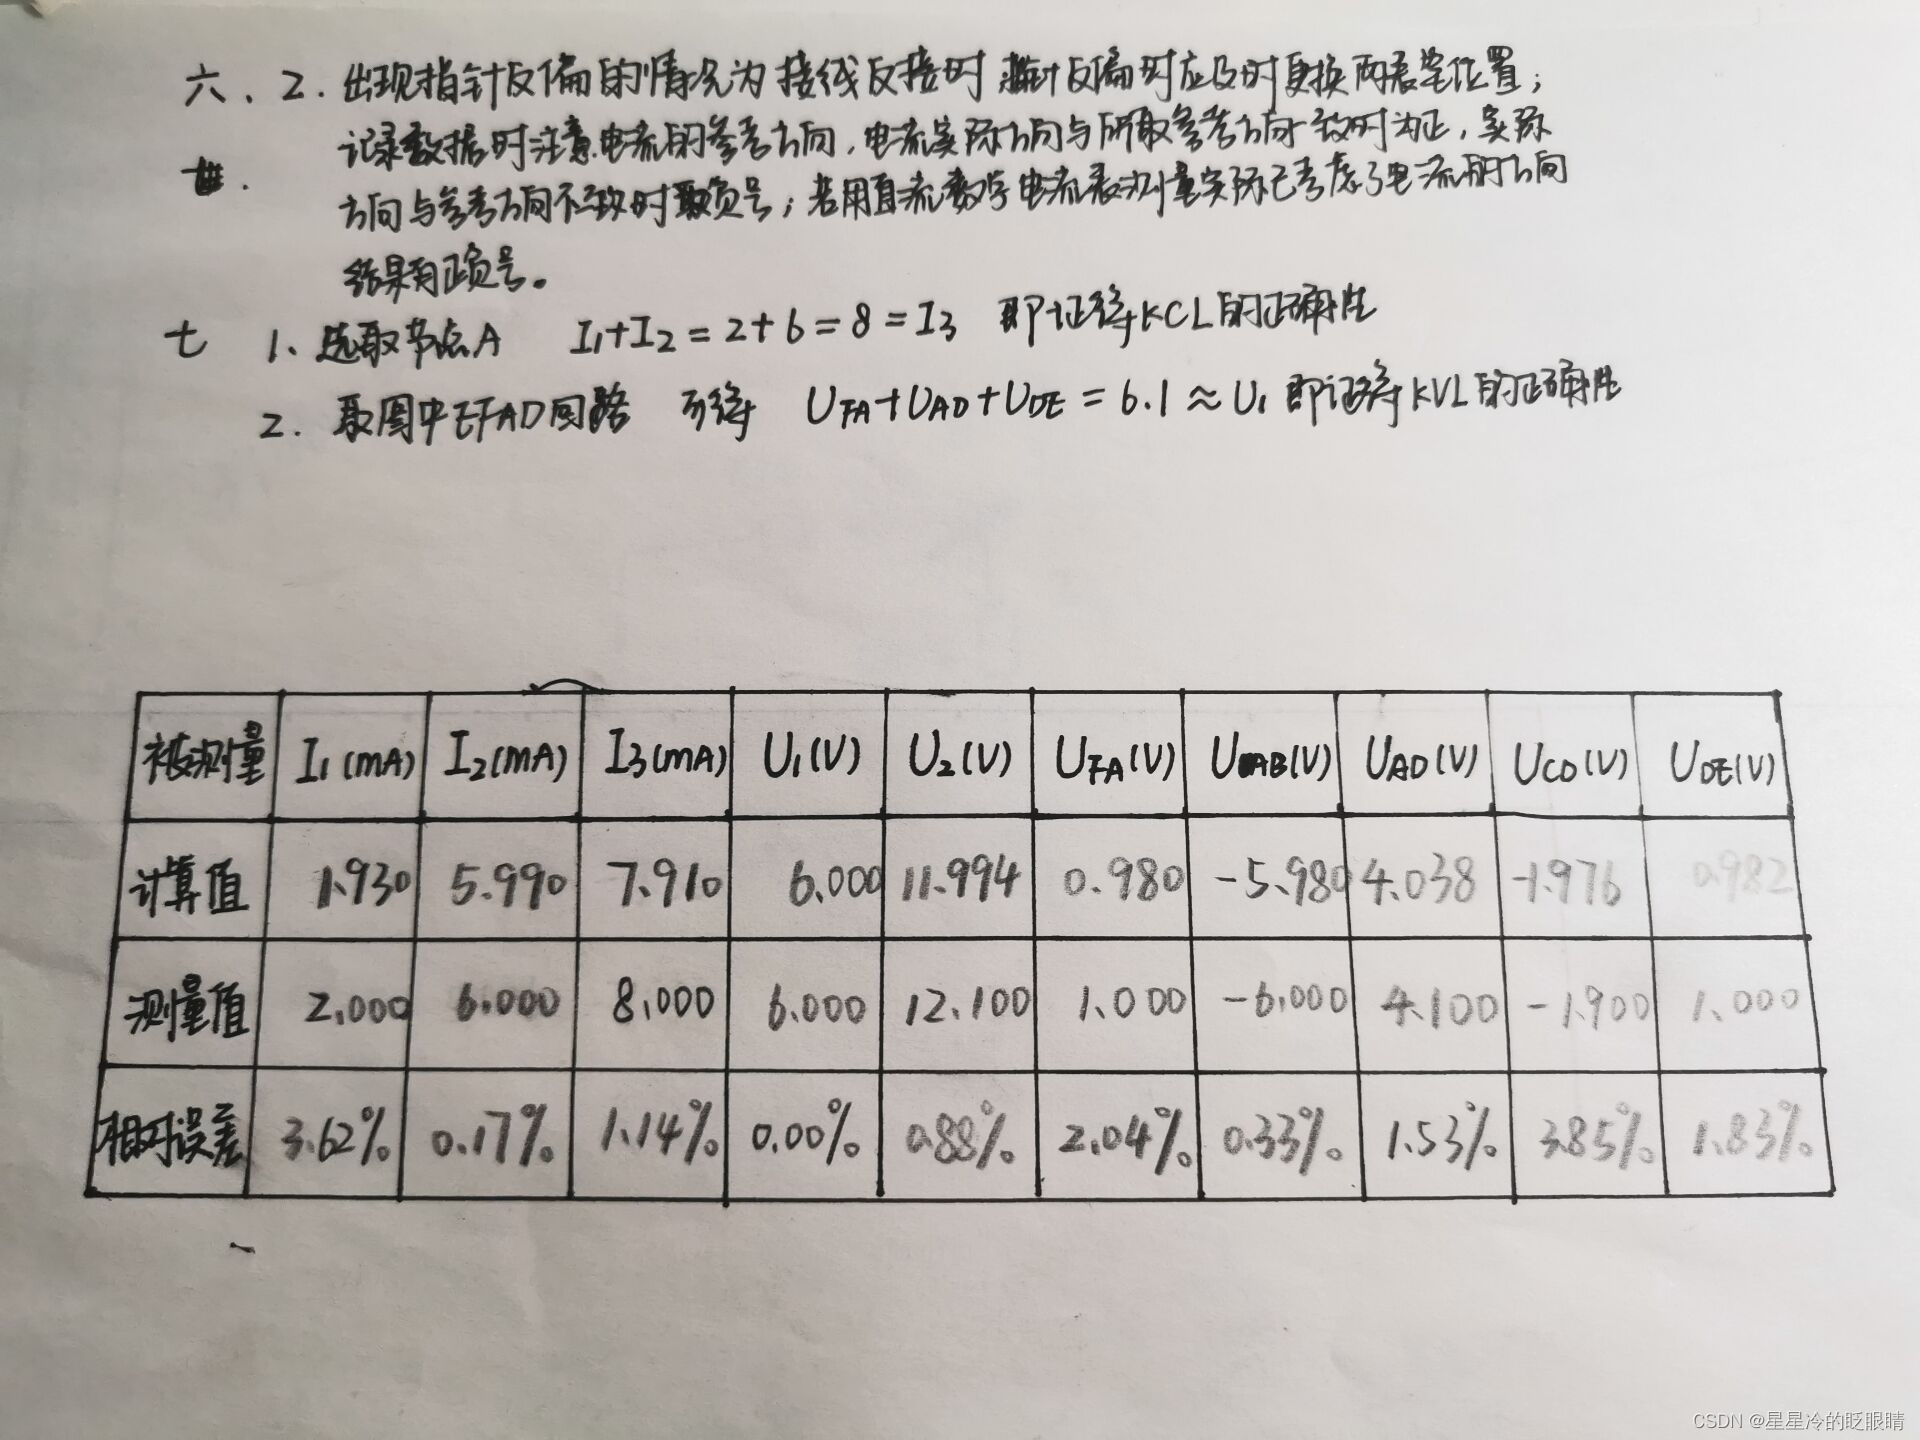 六、2. 出现指针反偏的情况为接线反接时 指针反偏时应及时更换两表笔位置；
记录数据时注意电流的参考方向，电流实际方向与所取参考方向一致时为正，实际
方向与参考方向不一致时取负号；若用直流数字电流表测量实际已考虑了电流的方向
结果有正负号。
七 1、选取节点A I₁+I₂=2+6=8=I₃ 即证得KCL的正确性
2. 取图中EFAD回路 可得 U_FA+U_AD+U_DE=6.1≈U₁ 即证得KVL的正确性
被测量 I₁(mA) I₂(mA) I₃(mA) U₁(V) U₂(V) U_FA(V) U_AB(V) U_AD(V) U_CD(V) U_DE(V)
计算值 1.930 5.990 7.910 6.000 11.994 0.980 -5.980 4.038 -1.976 0.982
测量值 2.000 6.000 8.000 6.000 12.100 1.000 -6.000 4.100 -1.900 1.000
相对误差 3.62% 0.17% 1.14% 0.00% 0.88% 2.04% 0.33% 1.53% 3.85% 1.83%
CSDN @星星冷的眨眼睛